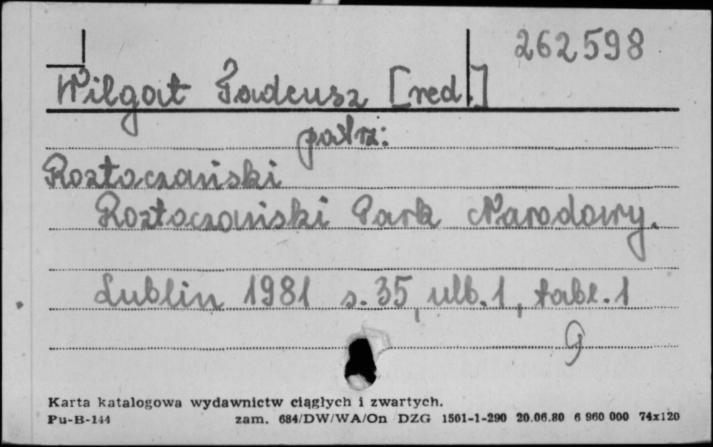 262598
Wilgat Tadeusz [red.]
patrz:
Roztoczański
Roztoczański Park Narodowy.
Lublin 1981 s. 35, ulb. 1, tabl. 1
g
Karta katalogowa wydawnictw ciągłych i zwartych.
Pu-B-144 zam. 684/DW/WA/On DZG 1501-1-290 20.06.80 6 960 000 74x120